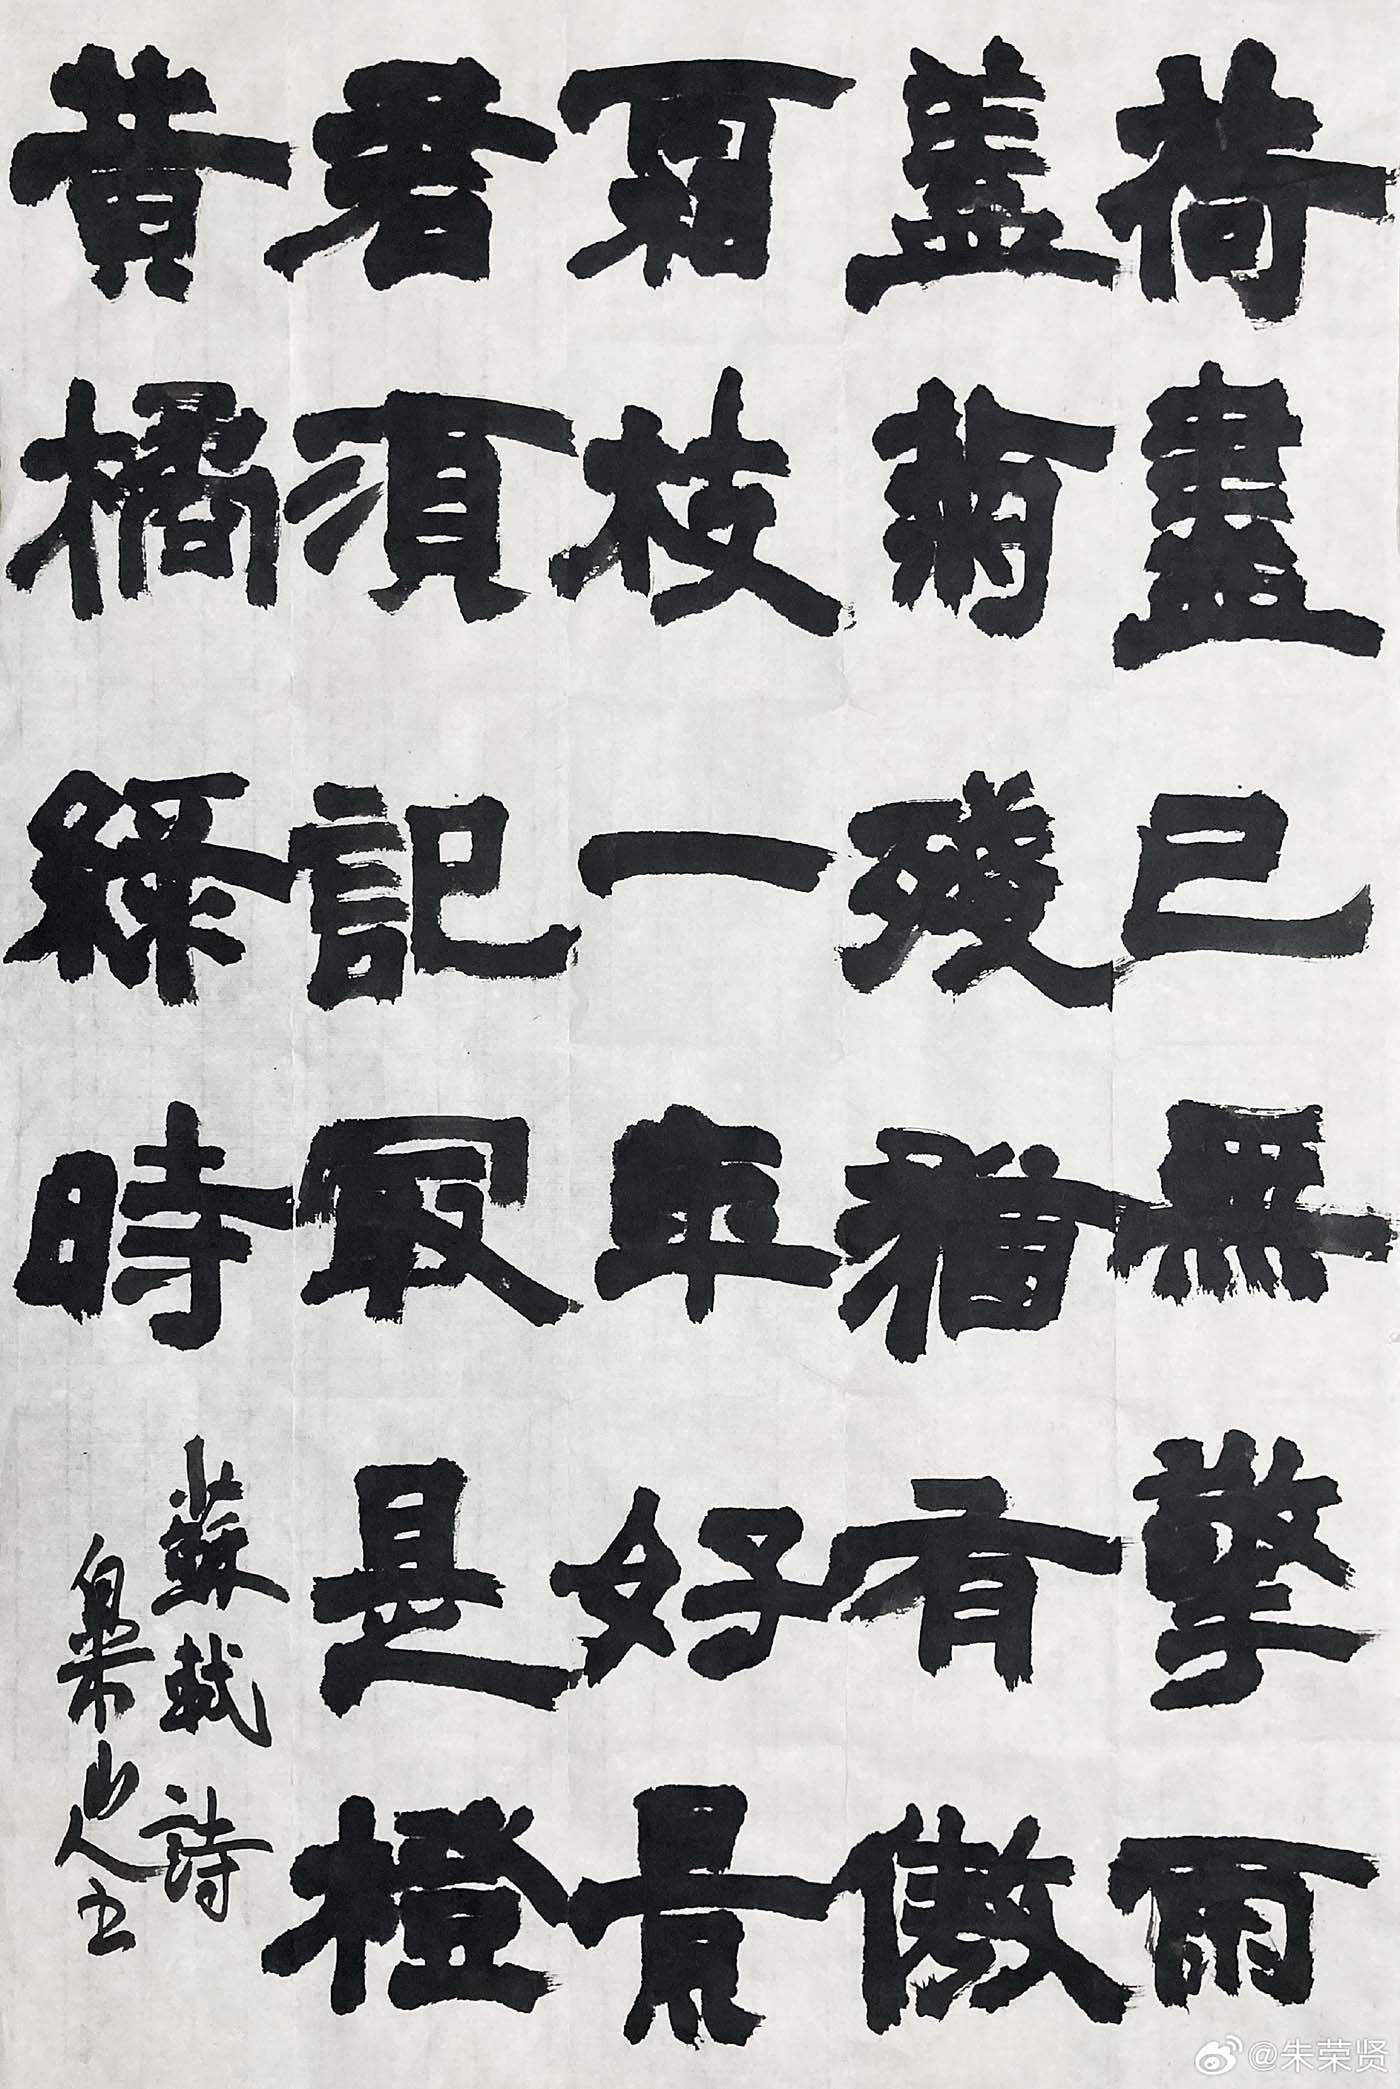 荷盡已無擎雨
蓋菊殘猶有傲
霜枝一年好景
君須記冣是橙
黄橘綠時
蘇軾詩
山人书
@朱荣贤